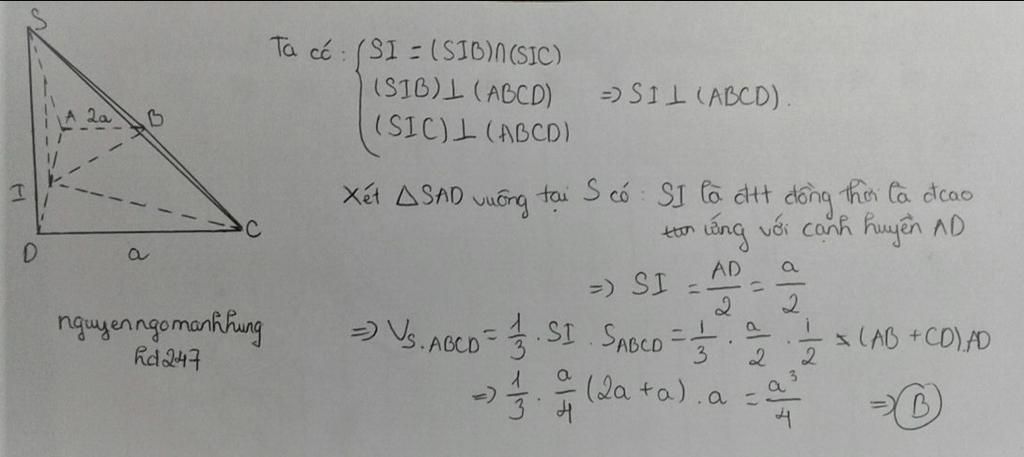 S
A 2a B
I
D a C
nguyenngomanhhung
hd247
Ta có: { SI = (SIB)∩(SIC)
(SIB)⊥(ABCD) ⇒ SI⊥(ABCD).
(SIC)⊥(ABCD)
Xét △SAD vuông tại S có: SI là đtt đồng thời là đcao
ứng với cạnh huyền AD
⇒ SI = AD/2 = a/2
⇒ V_S.ABCD = 1/3 . SI . S_ABCD = 1/3 . a/2 . 1/2 x (AB + CD).AD
⇒ 1/3 . a/4 (2a + a) . a = a³/4 ⇒ B